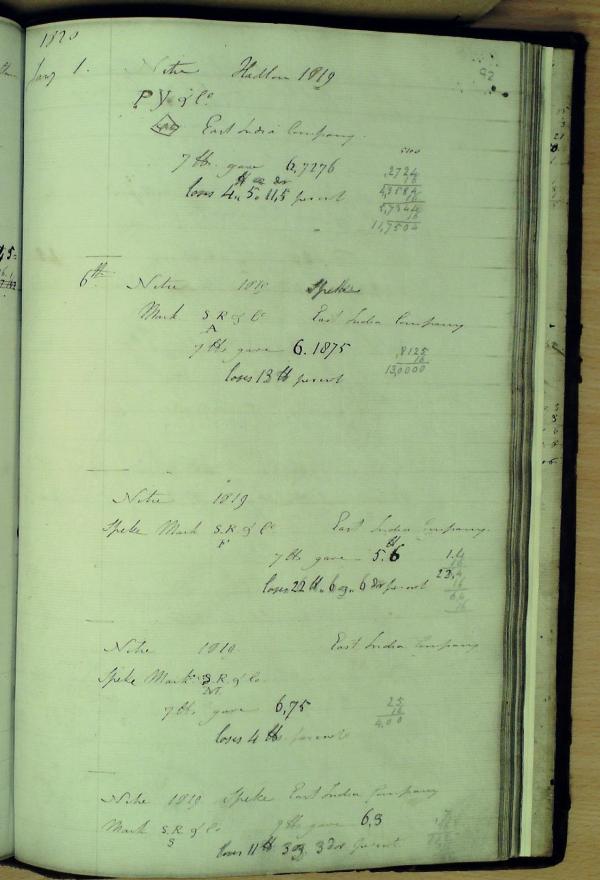 1820
92
Jany 1. Nitre Hadlow 1819
P Y & Co
East India Company.
7 lbs. gave 6,7276
,2724
16
4,3584
16
5,7344
16
11,7504
loses 4 lb 5 oz 11,5 dr percent
6th Nitre 1819 Speke
Mark S. R & Co East India Company
A
7 lbs gave 6.1875
,8125
16
13,0000
loses 13 lb percent
Nitre 1819
Speke Mark S. R & Co East India Company.
F
7 lbs gave 5.6
1.4
16
loses 22 lb 6 oz 6 dr percent
Nitre 1819 East India Company
Speke Mark S. R. & Co
7 lbs gave 6,75
25
16
4,00
loses 4 lbs percent
Nitre 1819 Speke East India Company
Mark S. R & Co 7 lbs gave 6,3
S
loses 11 lb 3 oz 3 dr percent